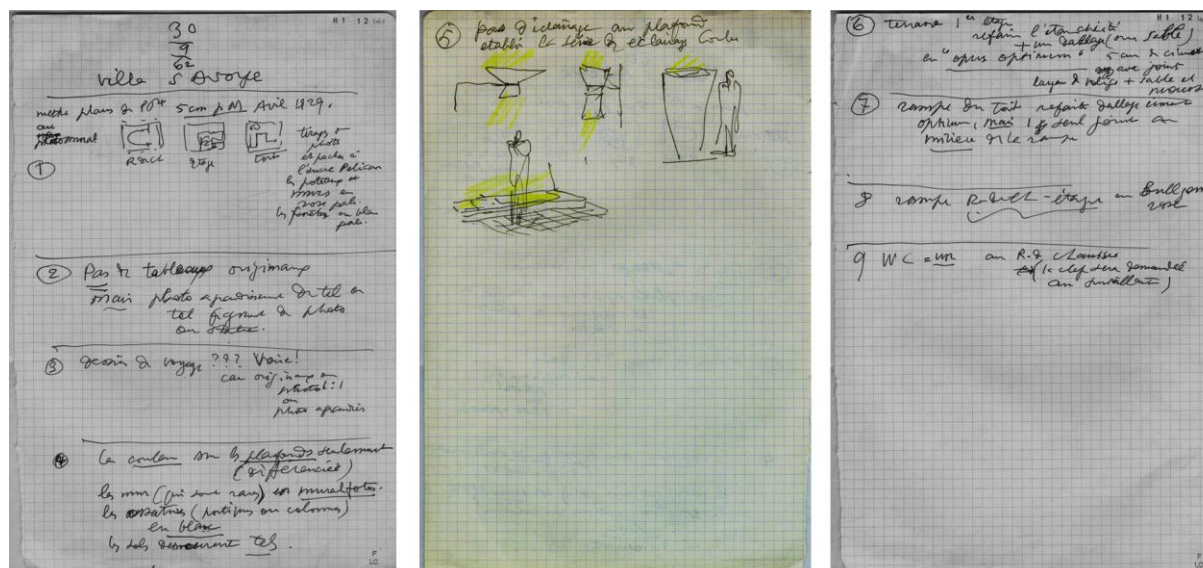 H1 12
30
9
62
villa SAVOYE
mettre plans de 5cm p M Avril 1929.
au
R de ch étage toit
tirages
photo
et pochés à
l'encre Pelican
les poteaux et
murs en
rose pale.
les fenêtres en bleu
pale.
1
2 Pas de tableaux originaux
mais photo agrandissement de tel ou
tel fragment de photo
ou
3 dessins de voyage ??? Voire!
car originaux ou
photo 1:1
ou
photo agrandies
4 La couleur sur les plafonds seulement
(différenciés)
les murs (qui sont rares) en muralfotos.
les ossatures (portiques ou colonnes)
en blanc
les sols demeurant tels.
5 pas d'éclairage au plafond
établir la série de éclairage Corbu
H1 12
6 terrasse 1er étage
refaire l'étanchéité
+ un dallage (sur sable)
en "opus optimum" 5 cm de ciment
avec joint
+ sable et
7 rampe du toit refaite dallage ciment
optimum, mais 1 seul joint au
milieu de la rampe
8 rampe R.de.ch - étage en
rose
9 WC = un au R. de chaussée
(la clef sera demandée
au surveillant)